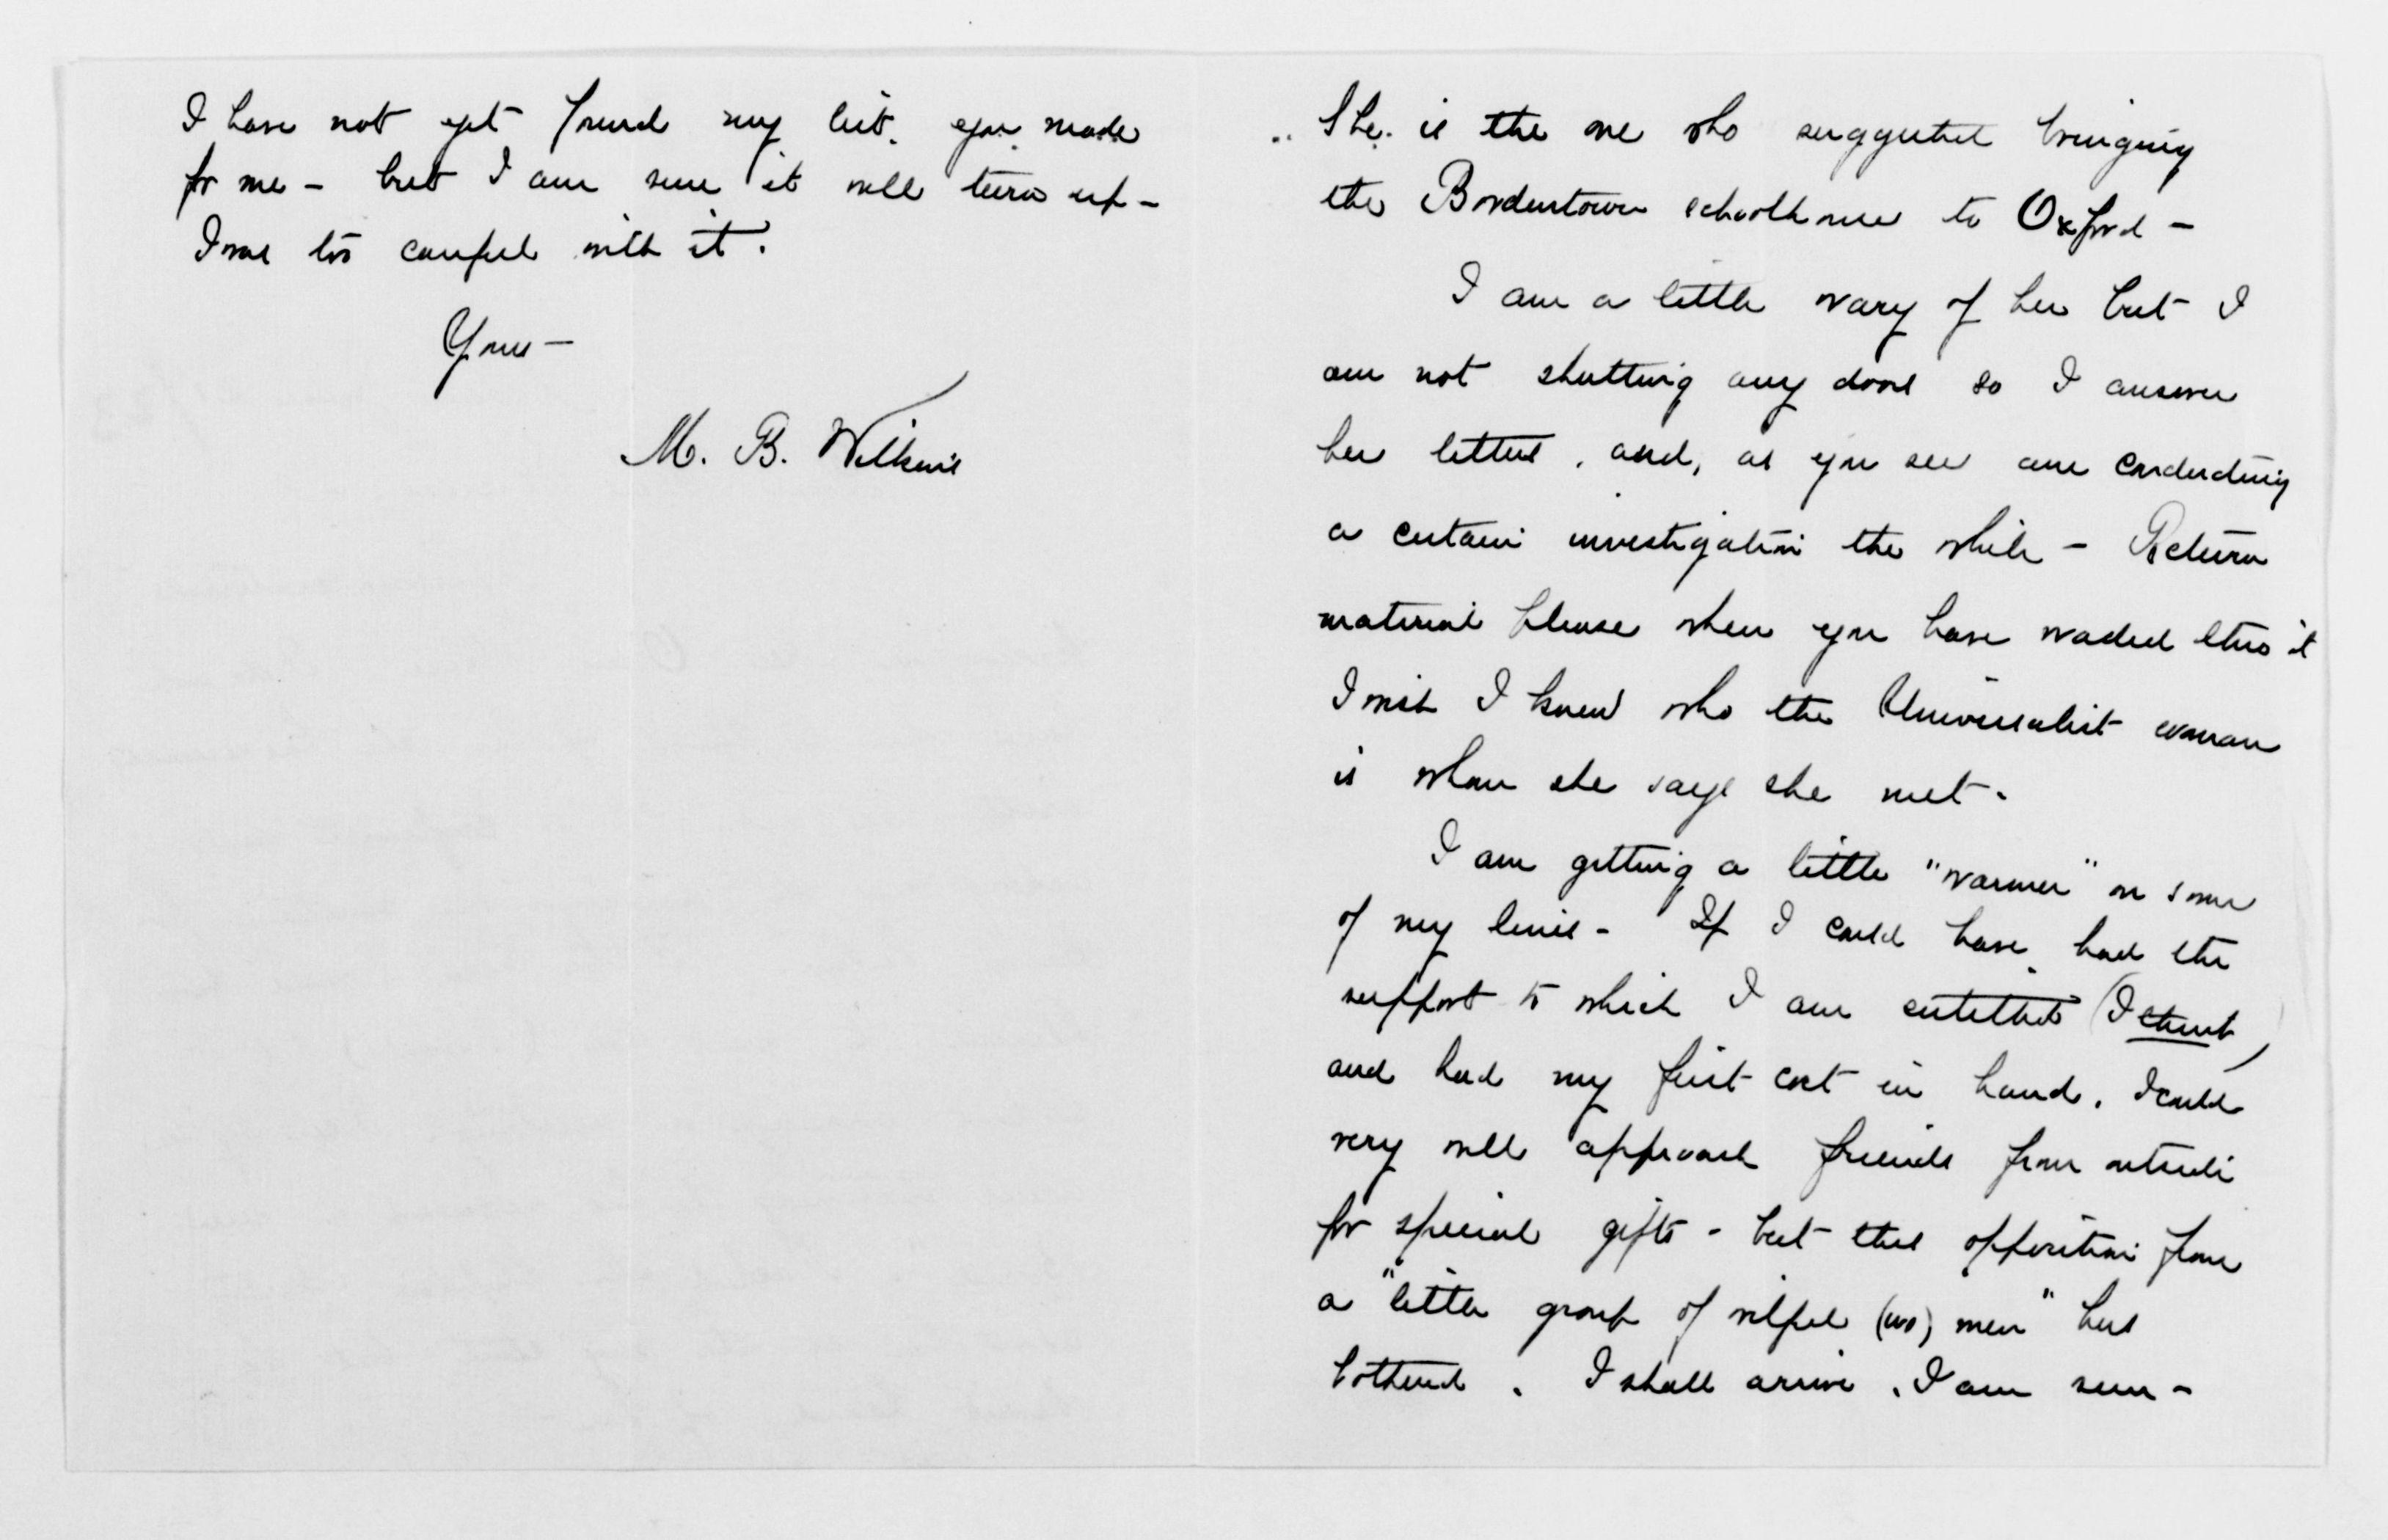 I have not yet found my list you made
for me – but I am sure it will turn up –
I was too careful with it.
Yours –
M. B. Wilkins
She is the one who suggested bringing
the Bordentown schoolhouse to Oxford –
I am a little wary of her but I
am not shutting any doors so I answer
her letters, and, as you see am conducting
a certain investigation the while – Return
material please when you have waded thro it
I wish I knew who the Universalist woman
is whom she says she met.
I am getting a little "warmer" on some
of my lines – If I could have had the
support to which I am entitled (I think)
and had my first cost in hand, I could
very well approach friends from outside
for special gifts – but this opposition from
a "little group of wilful (wo) men" has
bothered. I shall arrive, I am sure –